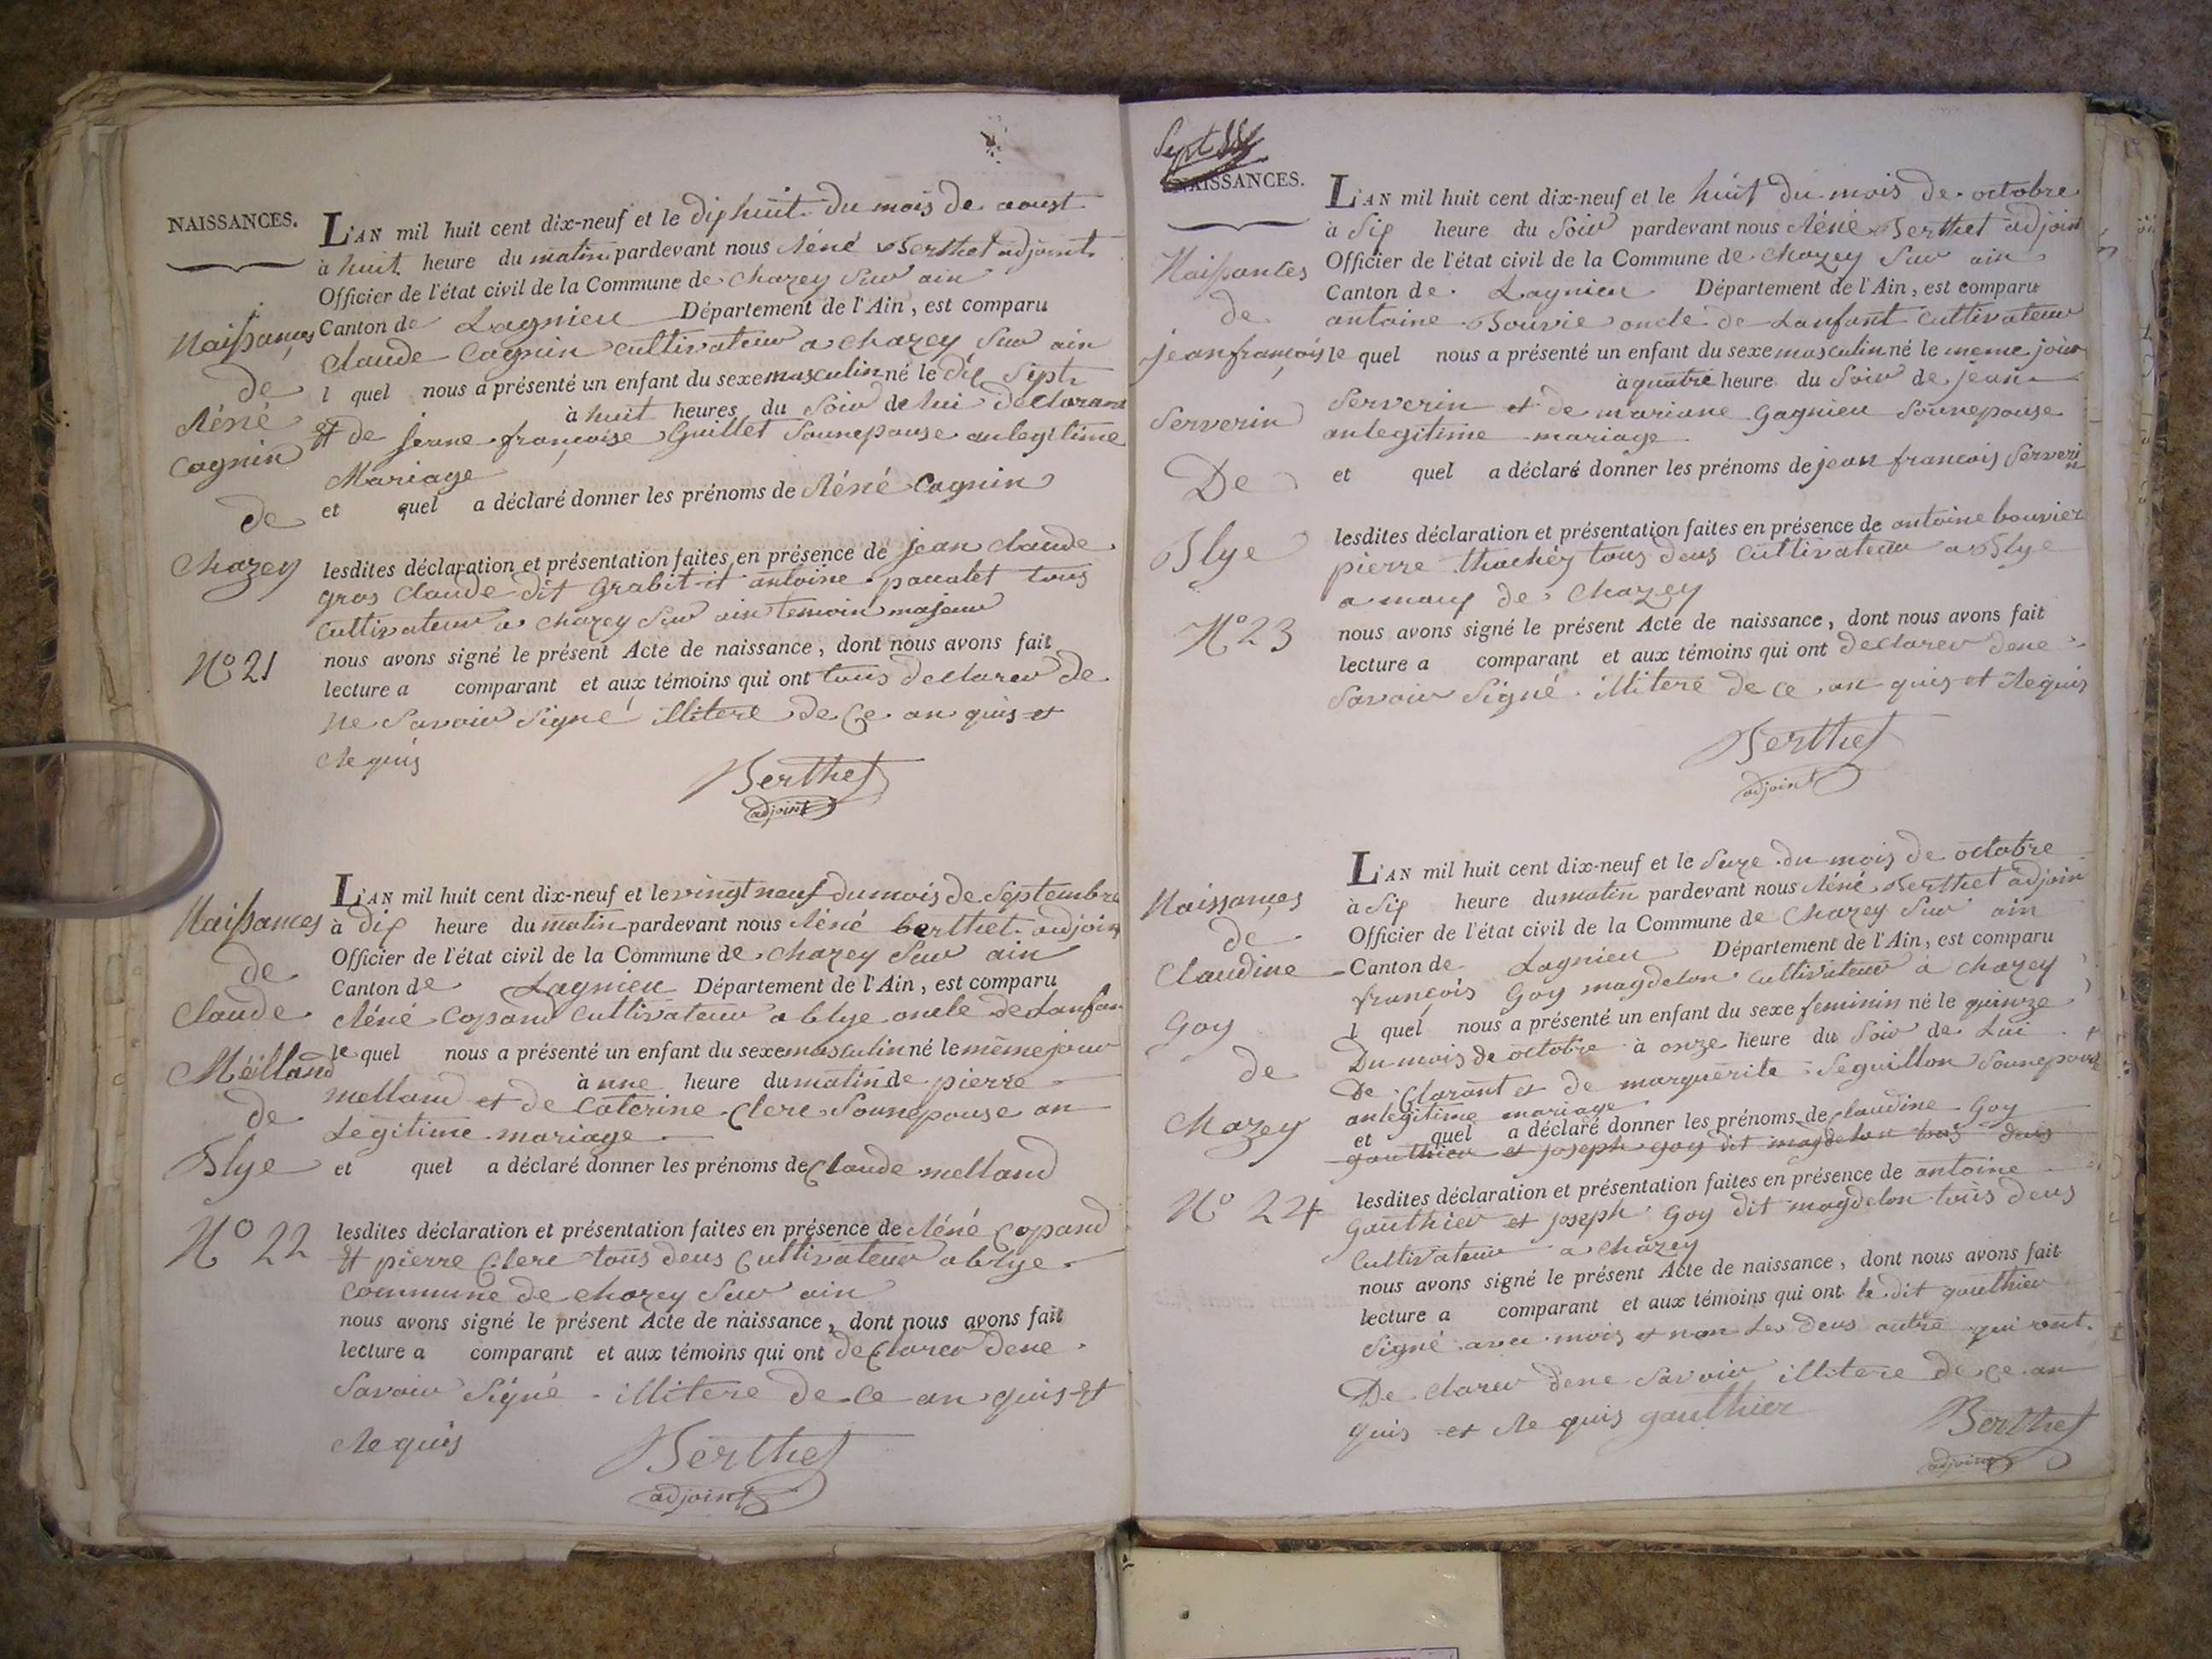 NAISSANCES.
L'AN mil huit cent dix-neuf et le dixhuit du mois de aoust
à huit heure du matin pardevant nous Réné Berthet adjoint
Officier de l'état civil de la Commune de Chazey Sur ain
Canton de Lagnieu Département de l'Ain, est comparu
Claude Cagnin cultivateur a chazey Sur ain
l quel nous a présenté un enfant du sexe masculin né le dix Sept
à huit heures du Soir de lui declarant
et de jeanne françoise Guillet Sounepouse anlegitime
Mariage
et quel a déclaré donner les prénoms de Réné Cagnin
lesdites déclaration et présentation faites en présence de jean claude
gros Claude dit Grabit et antoine pacalet tous
Cultivateur a Chazey Sur ain temoin majeur
nous avons signé le présent Acte de naissance, dont nous avons fait
lecture a comparant et aux témoins qui ont tous declarer de
ne Savoir Signé illitere de Ce an quis et
Requis
Berthet
adjoint
Naissances
de
Réné
Cagnin
de
Chazey
N° 21
L'AN mil huit cent dix-neuf et le vingt neuf du mois de Septembre
à dix heure du matin pardevant nous Réné berthet adjoin
Officier de l'état civil de la Commune de chazey Sur ain
Canton de Lagnieu Département de l'Ain, est comparu
Réné Copand Cultivateur a blye oncle de Lanfan
le quel nous a présenté un enfant du sexe masculin né le même jour
à une heure du matin de pierre
melland et de Caterine Clere Sounepouse an
Legitime mariage
et quel a déclaré donner les prénoms de Claude melland
lesdites déclaration et présentation faites en présence de Réné Copand
et pierre Clere tous deus Cultivateur a blye
Commune de chazey Sur ain
nous avons signé le présent Acte de naissance, dont nous avons fait
lecture a comparant et aux témoins qui ont declarer dene
Savoir Signé illitere de Ce an quis et
Requis
Berthet
adjoint
Naissances
de
Claude
Mélland
de
Blye
N° 22
Sept
NAISSANCES.
L'AN mil huit cent dix-neuf et le huit du mois de octobre
à Six heure du Soir pardevant nous Réné Berthet adjoint
Officier de l'état civil de la Commune de Chazey Sur ain
Canton de Lagnieu Département de l'Ain, est comparu
antoine Bouvie oncle de Lanfant Cultivateur
le quel nous a présenté un enfant du sexe masculin né le meme jour
à quatre heure du Soir de jean
Serverin et de mariane Gagnieu Sounepouse
anlegitime mariage
et quel a déclaré donner les prénoms de jean francois Serverin
lesdites déclaration et présentation faites en présence de antoine bouvier
pierre thachéy tous deus Cultivateur a Blye
de Chazey
nous avons signé le présent Acte de naissance, dont nous avons fait
lecture a comparant et aux témoins qui ont declarer dene
Savoir Signé illitere de Ce an quis et Requis
Berthet
adjoint
Naissances
de
jean françois
Serverin
De
Blye
N° 23
L'AN mil huit cent dix-neuf et le Saze du mois de octobre
à Six heure du matin pardevant nous Réné Berthet adjoin
Officier de l'état civil de la Commune de Chazey Sur ain
Canton de Lagnieu Département de l'Ain, est comparu
françois Goy magdelon Cultivateur à chazey
l quel nous a présenté un enfant du sexe feminin né le quinze
Du mois de octobre à onze heure du Soir de Lui
De Clarant et de marguerite Seguillon Sounepouse
anlegitime mariage
et quel a déclaré donner les prénoms de Claudine Goy
gauthier et joseph goy dit magdelon tous deus
lesdites déclaration et présentation faites en présence de antoine
Gauthier et joseph Goy dit magdelon tous deus
Cultivateur a Chazey
nous avons signé le présent Acte de naissance, dont nous avons fait
lecture a comparant et aux témoins qui ont le dit gauthier
Signé avec mois et non Les deus autre qui ont
De clarer dene Savoir illitere de Ce an
quis et Requis gauthier
Berthet
adjoint
Naissances
de
Claudine
Goy
de
Chazey
N° 24